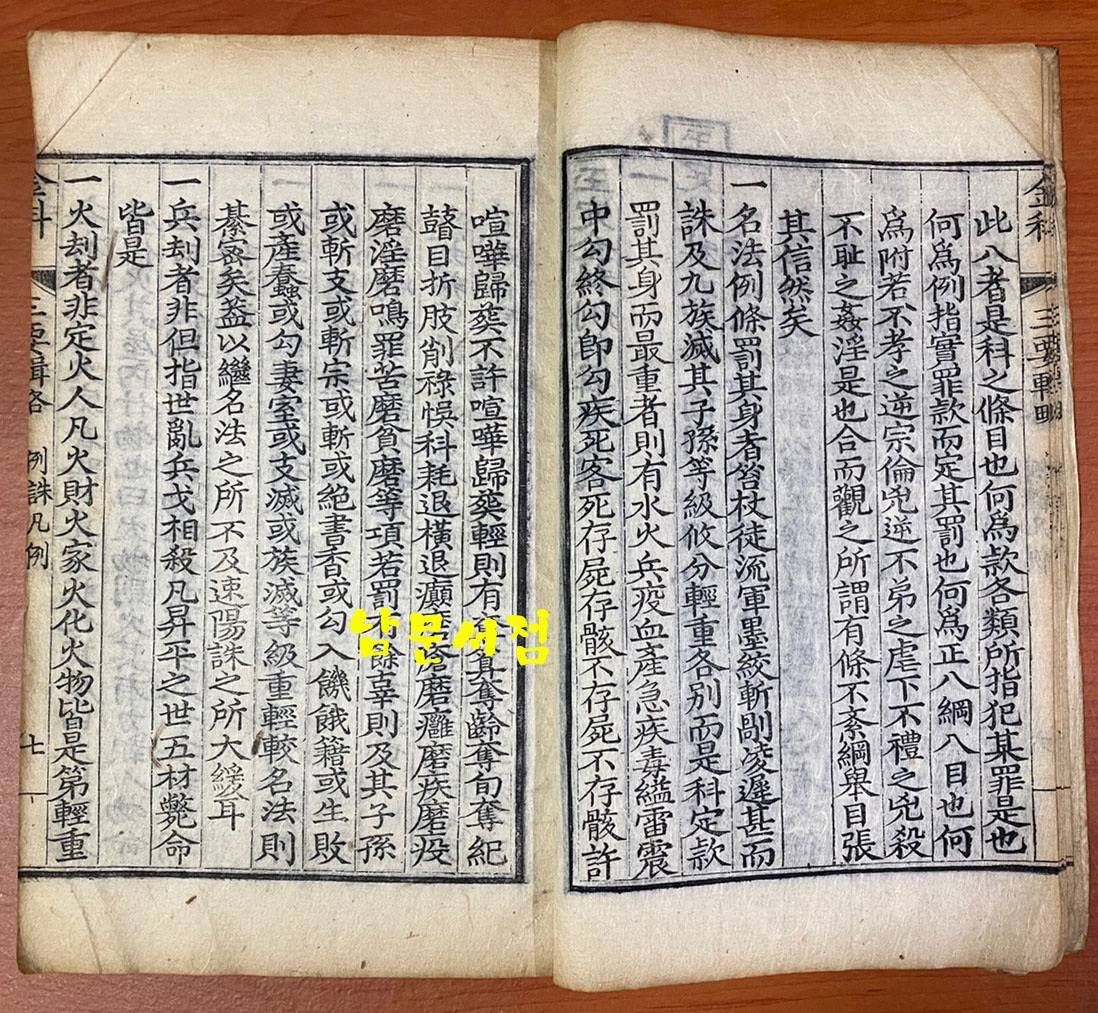 金科
三要輯略
此八者是科之條目也何爲款各類所指犯某罪是也
何爲例指實罪款而定其罰也何爲正八綱八目也何
爲附若不孝之逆宗倫兇逆不弟之虐下不禮之兇殺
不耻之姦淫是也合而觀之所謂有條不紊綱舉目張
其信然矣
一名法例條罰其身者笞杖徒流軍墨絞斬剮凌遲甚而
誅及九族滅其子孫等級攸分輕重各別而是科定款
罰其身而最重者則有水火兵疫血產急疾毒縊雷震
中勾終勾卽勾疾死客死存屍存骸不存屍不存骸許
喧嘩歸葬不許喧嘩歸葬輕則有奪算奪齡奪旬奪紀
瞽目折肢削祿悞科耗退橫退癲磨瘡磨癱磨疾磨疫
磨淫磨鳴罪苦磨貧磨等項若罰有餘辜則及其子孫
或斬支或斬宗或斬或絕書香或勾入饑餓籍或生敗
或產蠢或勾妻室或支滅或族滅等級重輕較名法則
綦密矣蓋以繼名法之所不及速陽誅之所大緩耳
一兵刦者非但指世亂兵戈相殺凡昇平之世五材斃命
皆是
一火刦者非定火人凡火財火家火化火物皆是第輕重
金科
三要輯略
例誅凡例
七
남문서점